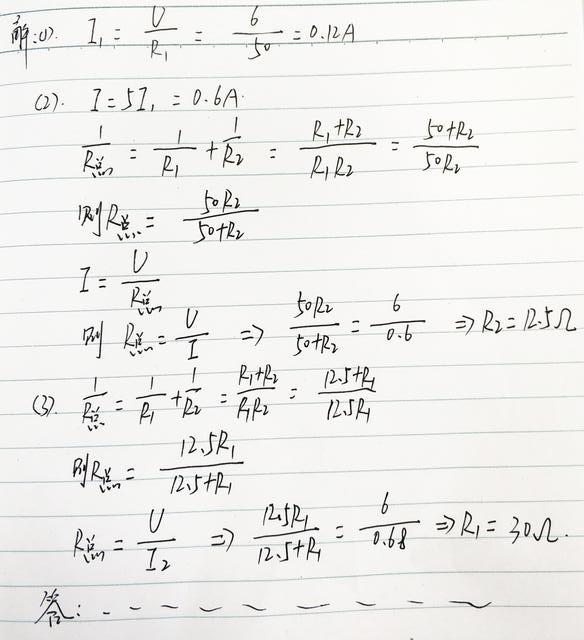 解:(1). I₁ = U/R₁ = 6/50 = 0.12A
(2). I = 5I₁ = 0.6A.
1/R总 = 1/R₁ + 1/R₂ = (R₁+R₂)/(R₁R₂) = (50+R₂)/(50R₂)
则R总 = 50R₂/(50+R₂)
I = U/R总
则 R总 = U/I ⇒ 50R₂/(50+R₂) = 6/0.6 ⇒ R₂ = 12.5Ω
(3). 1/R总 = 1/R₁ + 1/R₂ = (R₁+R₂)/(R₁R₂) = (12.5+R₁)/(12.5R₁)
则R总 = 12.5R₁/(12.5+R₁)
R总 = U/I₂ ⇒ 12.5R₁/(12.5+R₁) = 6/0.68 ⇒ R₁ = 30Ω.
答: - - - - - - - -